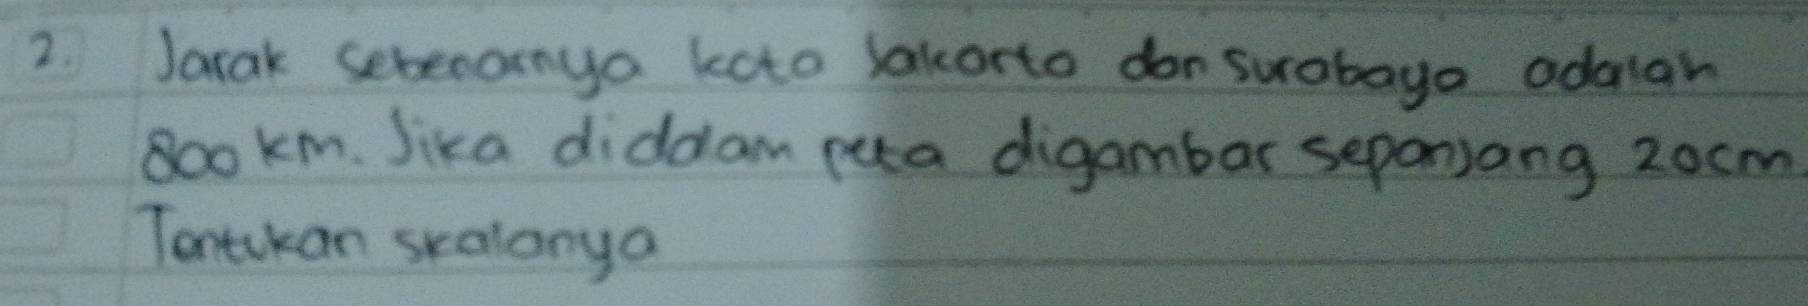 2. Jarak sebenarnya kota Jakarta dan surabaya adalah
800 km. Jika didalam peta digambar sepanjang 20cm.
Tentukan skalanya